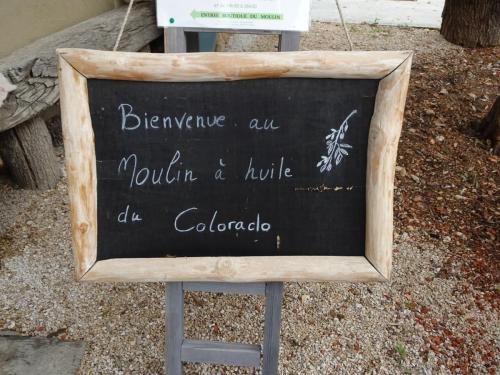 ENTRÉE BOUTIQUE DU MOULIN
Bienvenue au
Moulin à huile
du Colorado